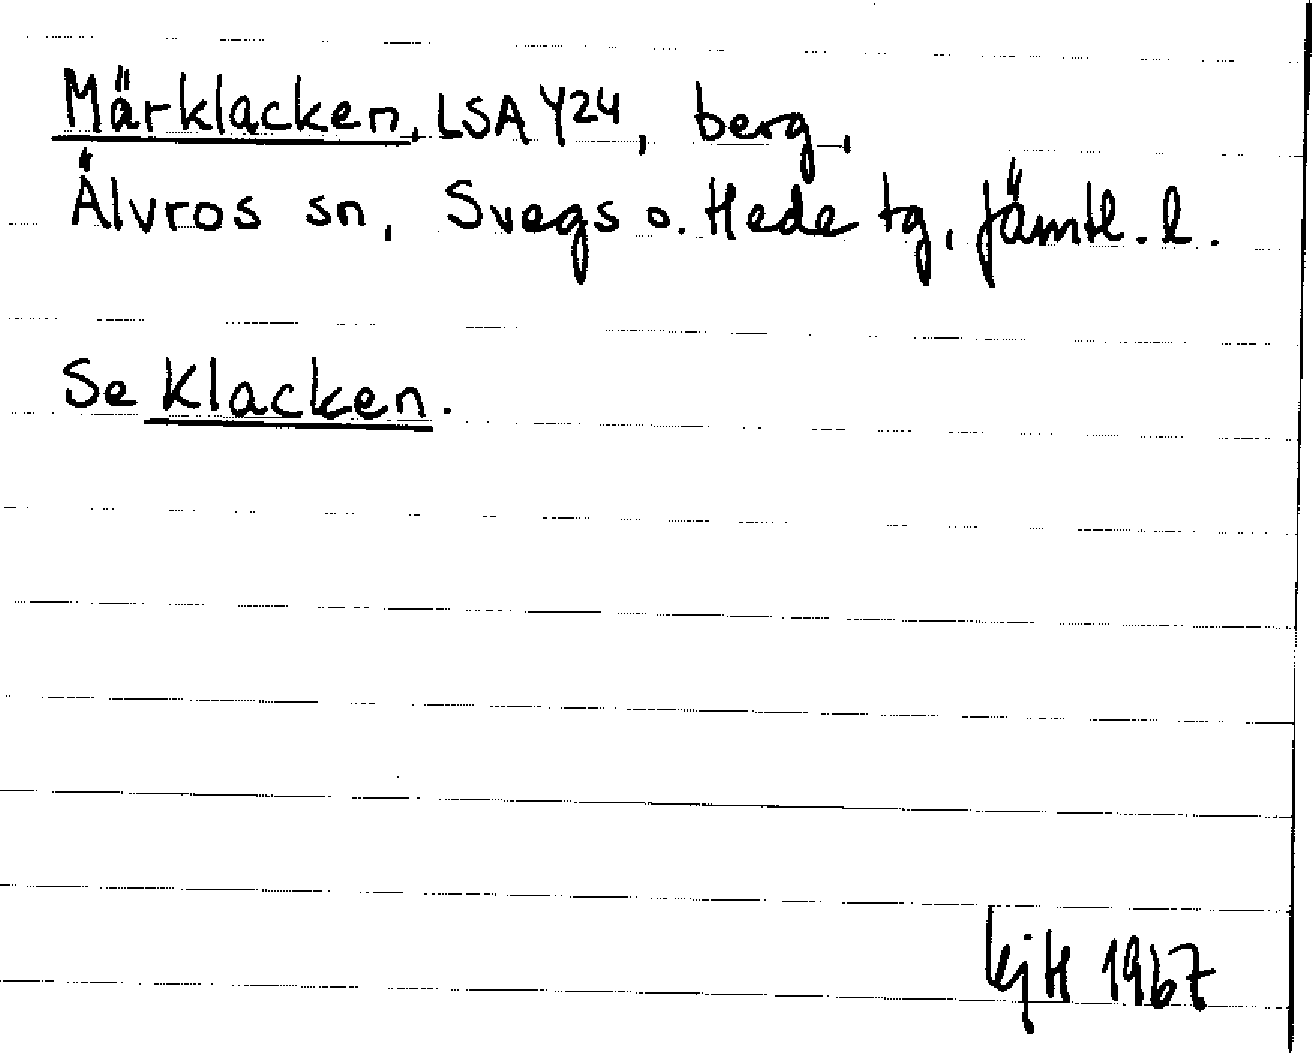 Märklacken, LSA Y24, berg,
Älvros sn, Svegs o. Hede tg, Jämtl. l.
Se Klacken.
KjH 1967